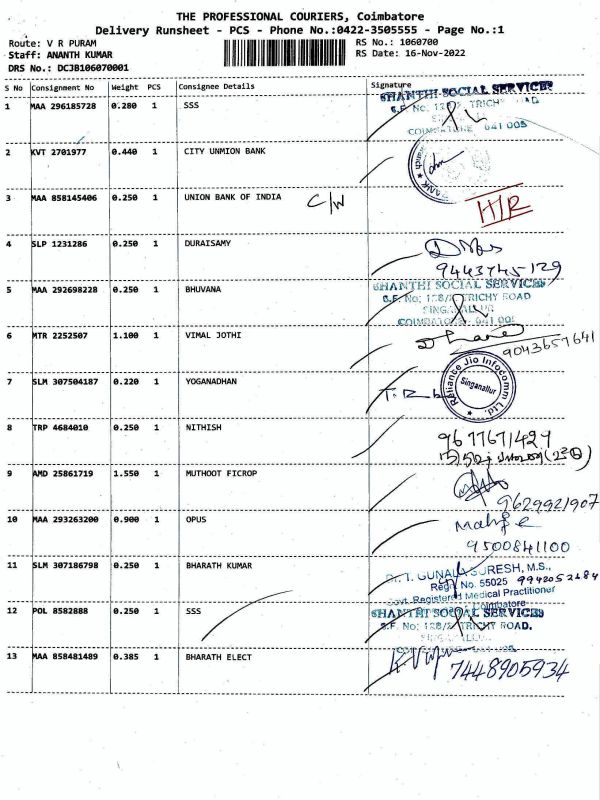 THE PROFESSIONAL COURIERS, Coimbatore
Delivery Runsheet - PCS - Phone No.:0422-3505555 - Page No.:1
Route: V R PURAM
RS No.: 1060700
Staff: ANANTH KUMAR
RS Date: 16-Nov-2022
DRS No.: DCJB106070001
S No Consignment No Weight PCS Consignee Details Signature
1 MAA 296185728 0.280 1 SSS
SHANTHI SOCIAL SERVICES
COIMBATORE 641 005
2 KVT 2701977 0.440 1 CITY UNMION BANK
BANK
3 MAA 858145406 0.250 1 UNION BANK OF INDIA C/W H/R
4 SLP 1231286 0.250 1 DURAISAMY
9443745129
5 MAA 292698228 0.250 1 BHUVANA
SHANTHI SOCIAL SERVICES
TRICHY ROAD
SINGANALLUR
COIMBATORE 641 005
6 MTR 2252507 1.100 1 VIMAL JOTHI
9043657641
7 SLM 307504187 0.220 1 YOGANADHAN
Reliance Jio Infocomm Ltd.
Singanallur
8 TRP 4684010 0.250 1 NITHISH
9677671429
9 AMD 25861719 1.550 1 MUTHOOT FICROP
9629921907
10 MAA 293263200 0.900 1 OPUS
9500841100
11 SLM 307186798 0.250 1 BHARATH KUMAR
SURESH, M.S.,
Regn No. 55025
Govt. Registered Medical Practitioner
Coimbatore
12 POL 8582888 0.250 1 SSS
SHANTHI SOCIAL SERVICES
TRICHY ROAD.
13 MAA 858481489 0.385 1 BHARATH ELECT
7448905934